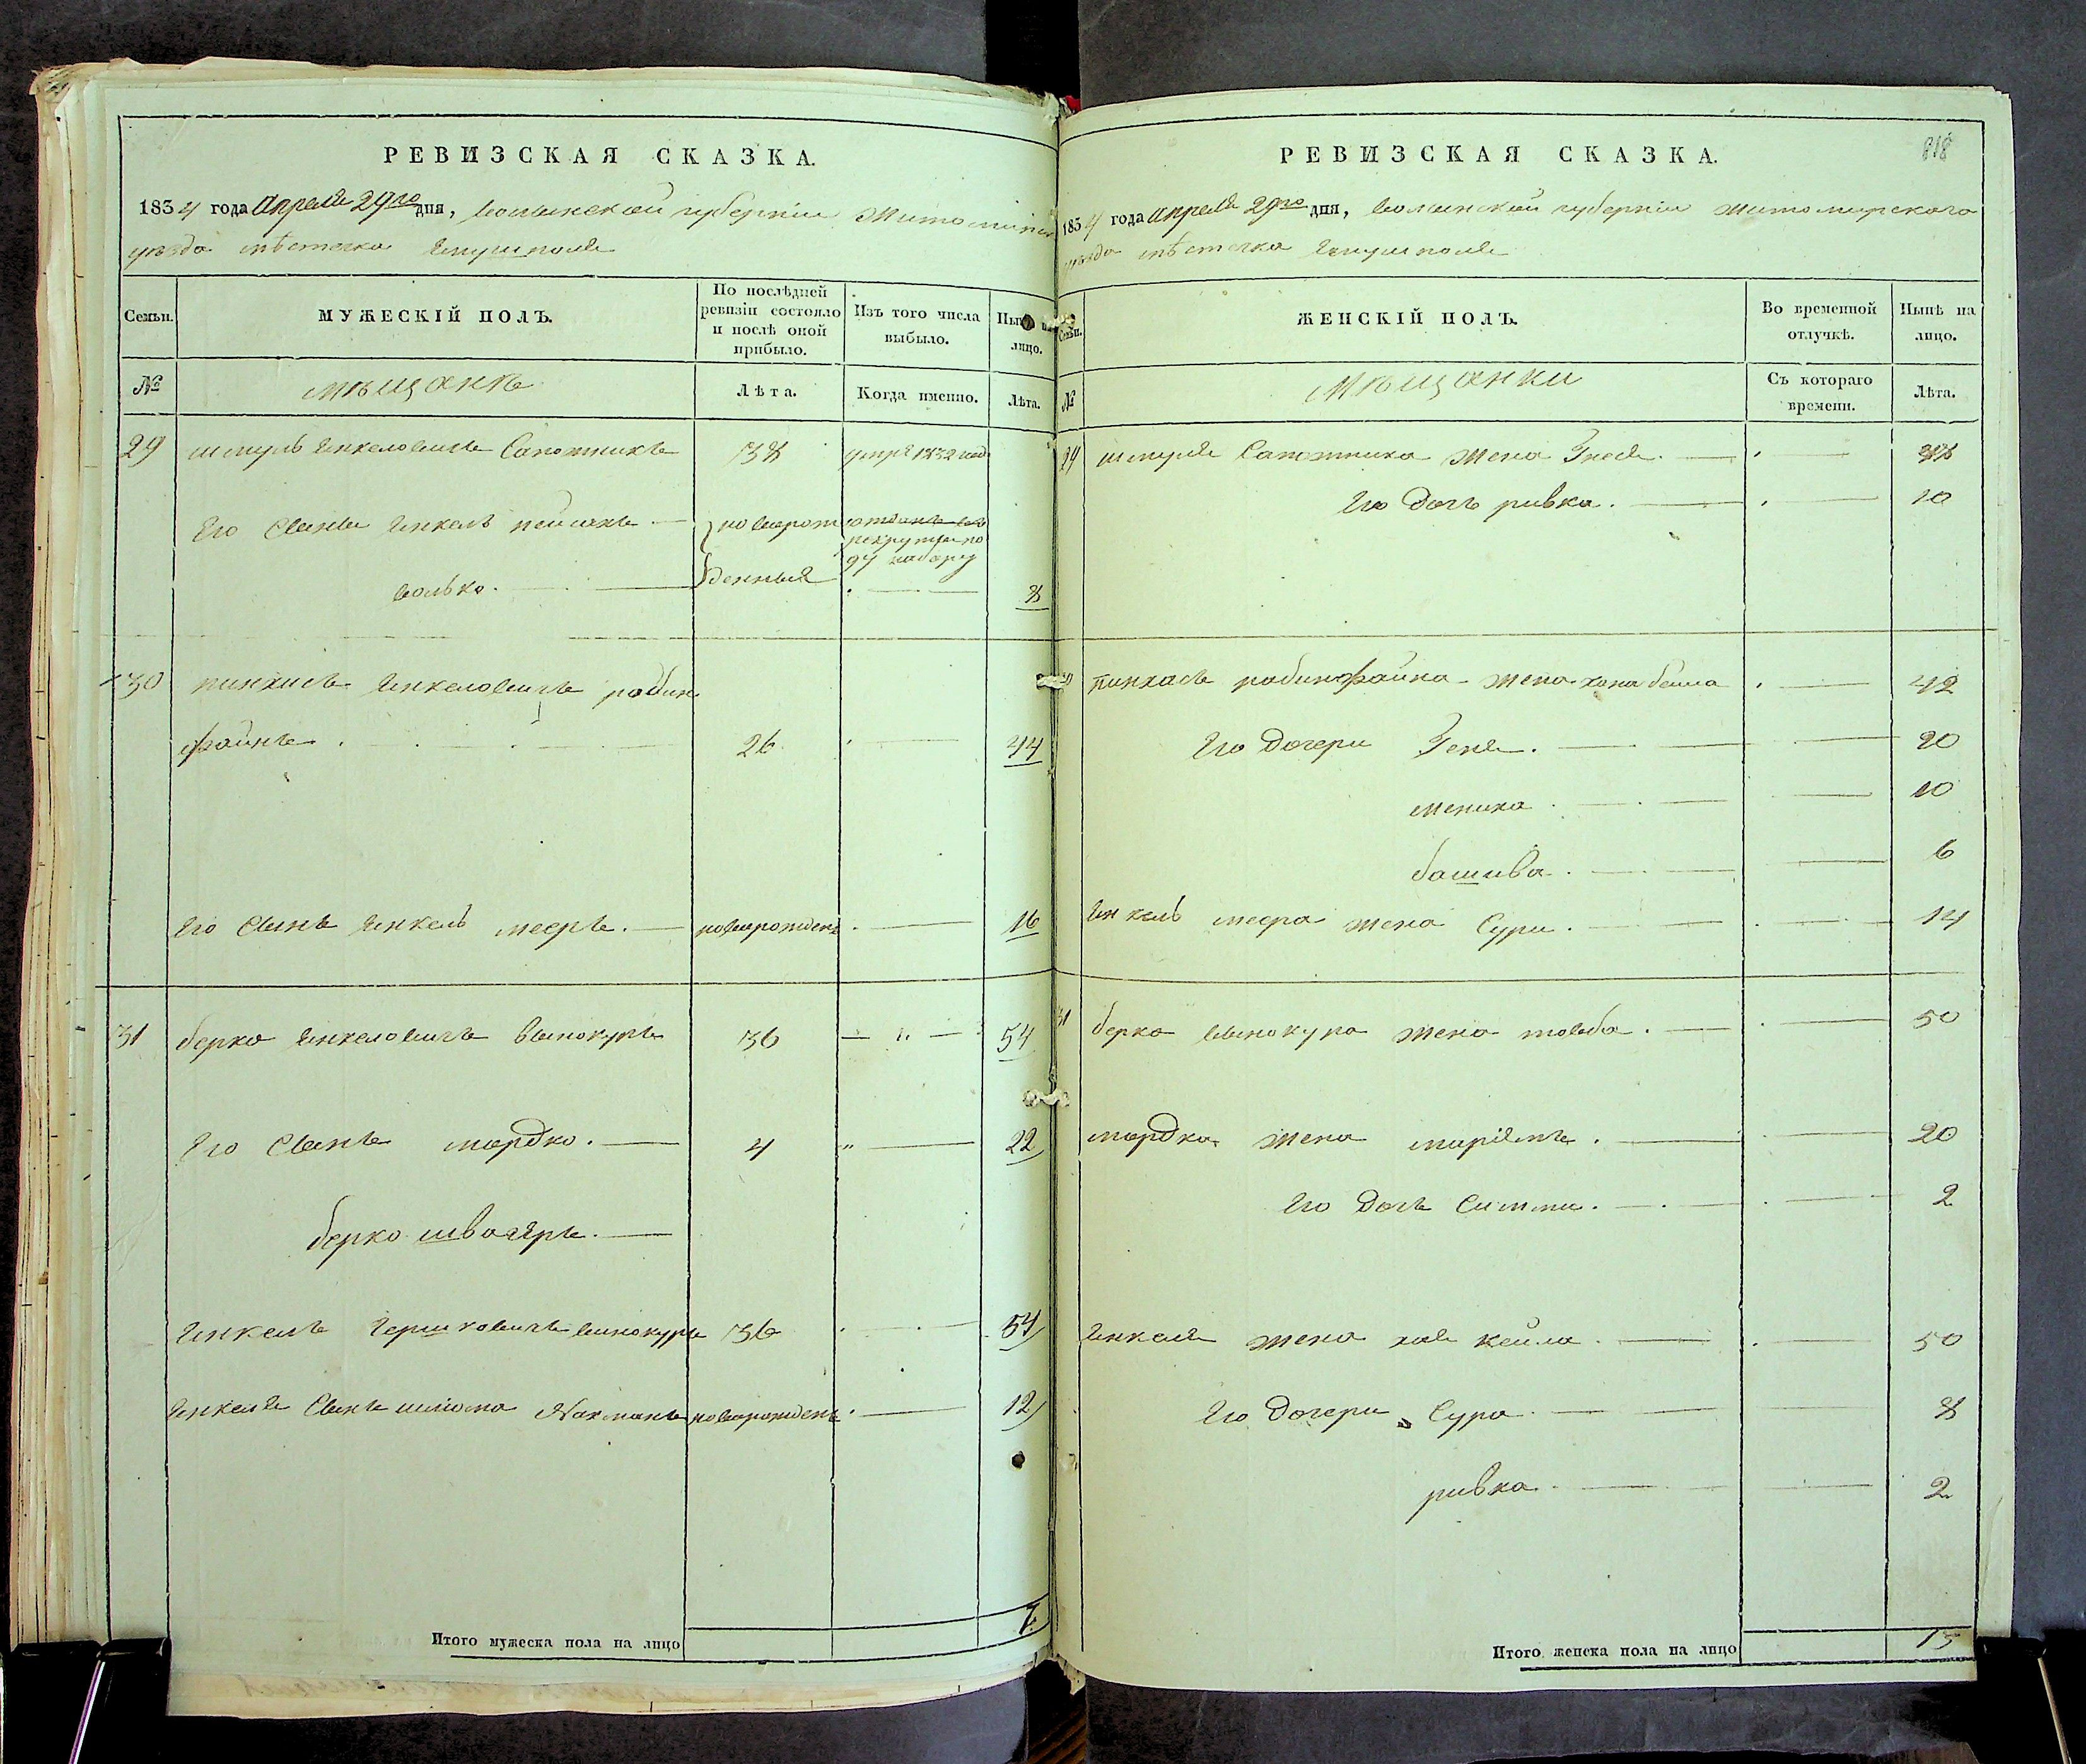 РЕВИЗСКАЯ СКАЗКА.
1834 года Апреля 29го дня, Волынской губернии Житомирск
уезда мѣстечка Янушполя
Семьи.
МУЖЕСКІЙ ПОЛЪ.
По послѣдней ревизіи состояло и послѣ оной прибыло.
Изъ того числа выбыло.
Нынѣ на лицо.
№
мѣщанѣ
Лѣта.
Когда именно.
Лѣта.
29 шмуль Янкеловичъ Сапожникъ 38 умре 1832 год
Его Сынъя Янкель пейсахъ новорож отданъ въ
рекруты по
94 набору
волько. денныя 8
30 пинхисъ Янкеловичъ рабин
файнъ 26 44
Его Сынъ Янкель мееръ. новорожденъ 16
31 берко Янкеловичъ винокуръ 36 54
Его Сынъ мордко. 4 22
берко швагеръ.
Янкель Гершковичъ винокуръ 36 54
Янкеля Сынъ шліома Нахманъ новорожденъ 12
Итого мужеска пола на лицо 7.
818
РЕВИЗСКАЯ СКАЗКА.
1834 года Апреля 29го дня, Волынской губернии Житомирского
уезда мѣстечка Янушполя
Семьи.
ЖЕНСКІЙ ПОЛЪ.
Во временной отлучкѣ.
Нынѣ на лицо.
№
мѣщанки
Съ котораго времени.
Лѣта.
29 шмуля Сапожника жена Знеся.
Его Дочь ривка. 10
пинхасъ рабинофайна жена хана бейла 42
Его Дочери Зеня. 20
мениха 10
башива 6
Янкель меера жена Сури. 14
31 берка винокура жена товба. 50
мордка жена маріямъ. 20
Его Дочь Ситми. 2
Янкеля жена хая кейла 50
Его Дочери Сура 8
ривка 2
Итого женска пола на лицо 13